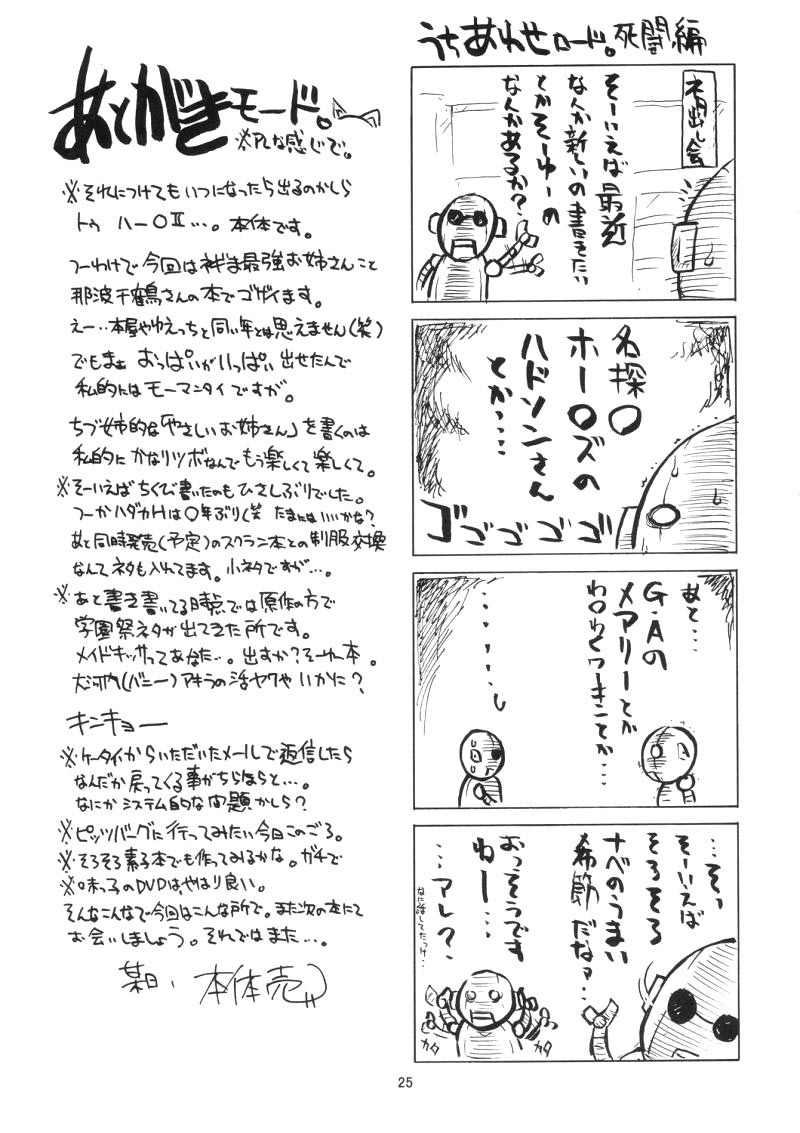 うちあわせロード。死闘編
ネタ出し会
そーいえば最近
なんか新しいの書きたい
とかそーゆーの
なんかあるか？
名探〇
ホー〇ズの
ハドソンさん
とか‥‥
ゴゴゴゴゴ
あと…
G・Aの
メアリーとか
わ〇わくワーキンとか…
・・・・・・
…そっ
そーいえば
そろそろ
ナベのうまい
季節だなァ…
おっそうです
ねー…
…アレ？
なに話してたっけ…
カタ
カタ
あとがきモード。
※PLな感じで。
※それにつけてもいつになったら出るのかしら
トゥ ハー〇Ⅱ…。本体です。
つーわけで今回はネギま最強お姉さんこと
那波千鶴さんの本でゴザイます。
えー‥本屋やゆえっちと同い年とは思えません（笑）
でもまぁ おっぱいがいっぱい出せたんで
私的にはモーマンタイですが。
ちづ姉的な「やさしいお姉さん」を書くのは
私的にかなりツボなんでもう楽しくて楽しくて。
※そーいえばちくび書いたのもひさしぶりでした。
つーかハダカHは〇年ぶり（笑 たまにはいいかな？
あと同時発売（予定）のスクラン本との制服交換
なんてネタも入れてます。小ネタですが…。
※あと書き書いてる時点では原作の方で
学園祭ネタが出てきた所です。
メイドキッサってあなた…。出すか？そーゆー本。
大河内（バニー）アキラの活ヤクやいかに？
キンキョー
※ケータイからいただいたメールで返信したら
なんだか戻ってくる事がちらほらと…。
なにかシステム的な問題かしら？
※ピッツバーグに行ってみたい今日このごろ。
※そろそろ素子本でも作ってみるかな。ガチで
※味っ子のDVDはやはり良い。
そんなこんなで今回はこんな所で。また次の本にて
お会いしましょう。それではまた…。
某日、本体売
25